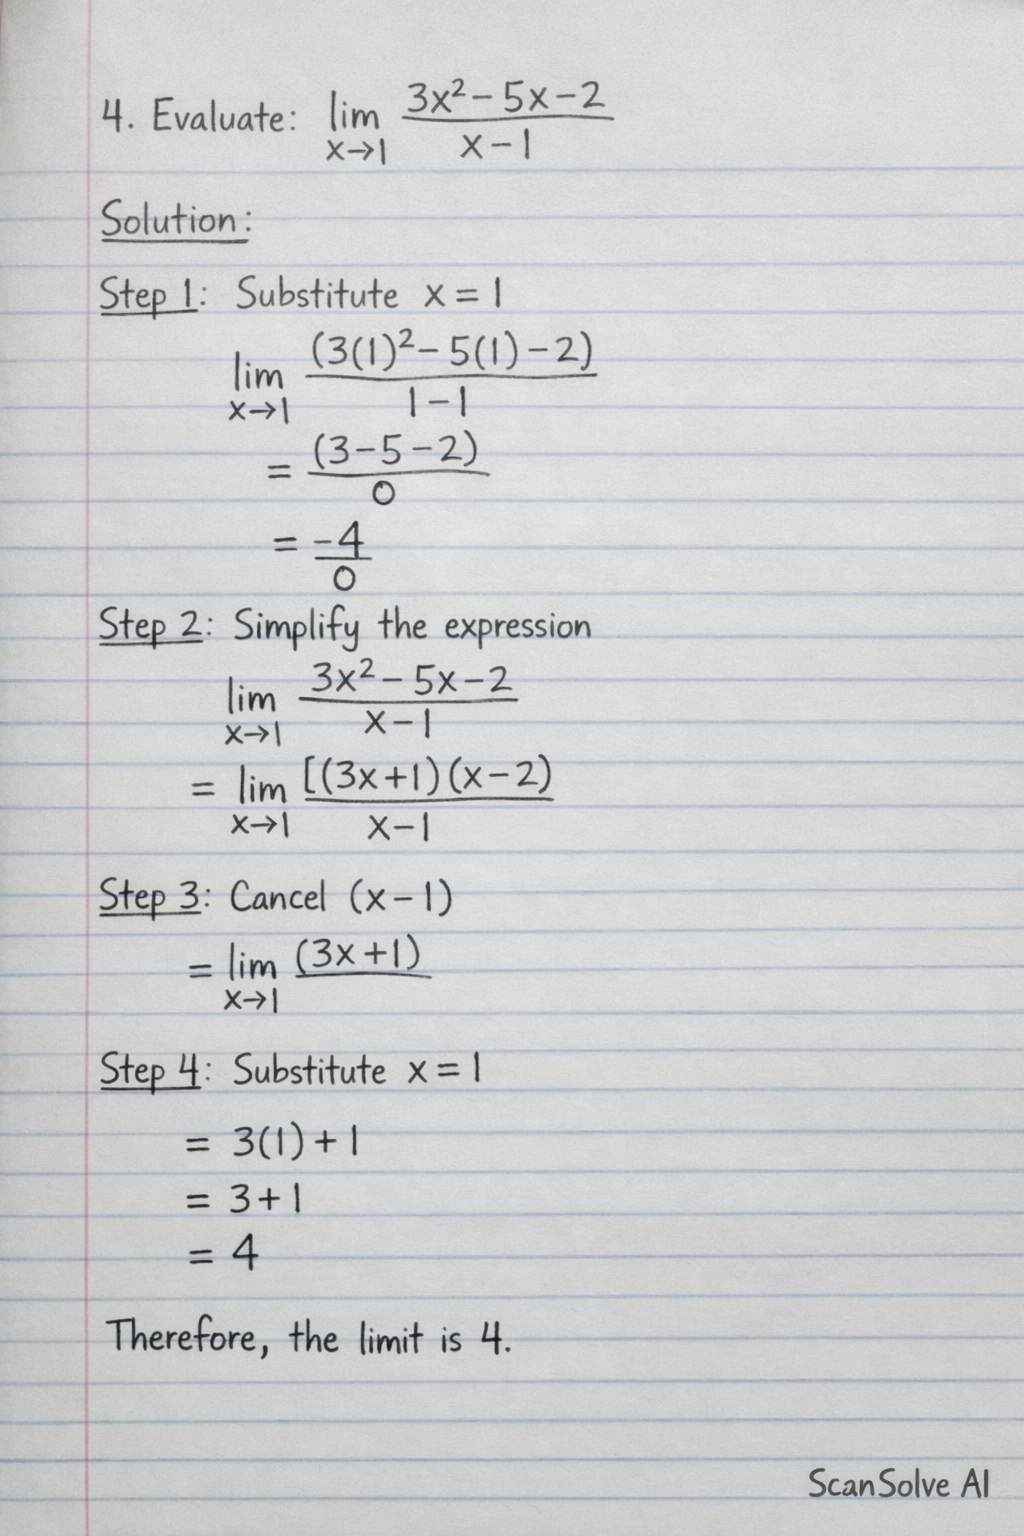 4. Evaluate: lim x→1 (3x² - 5x - 2)/(x - 1)
Solution:
Step 1: Substitute x = 1
lim x→1 (3(1)² - 5(1) - 2)/(1 - 1)
= (3 - 5 - 2)/0
= -4/0
Step 2: Simplify the expression
lim x→1 (3x² - 5x - 2)/(x - 1)
= lim x→1 [(3x + 1)(x - 2)/(x - 1)
Step 3: Cancel (x - 1)
= lim x→1 (3x + 1)
Step 4: Substitute x = 1
= 3(1) + 1
= 3 + 1
= 4
Therefore, the limit is 4.
ScanSolve AI